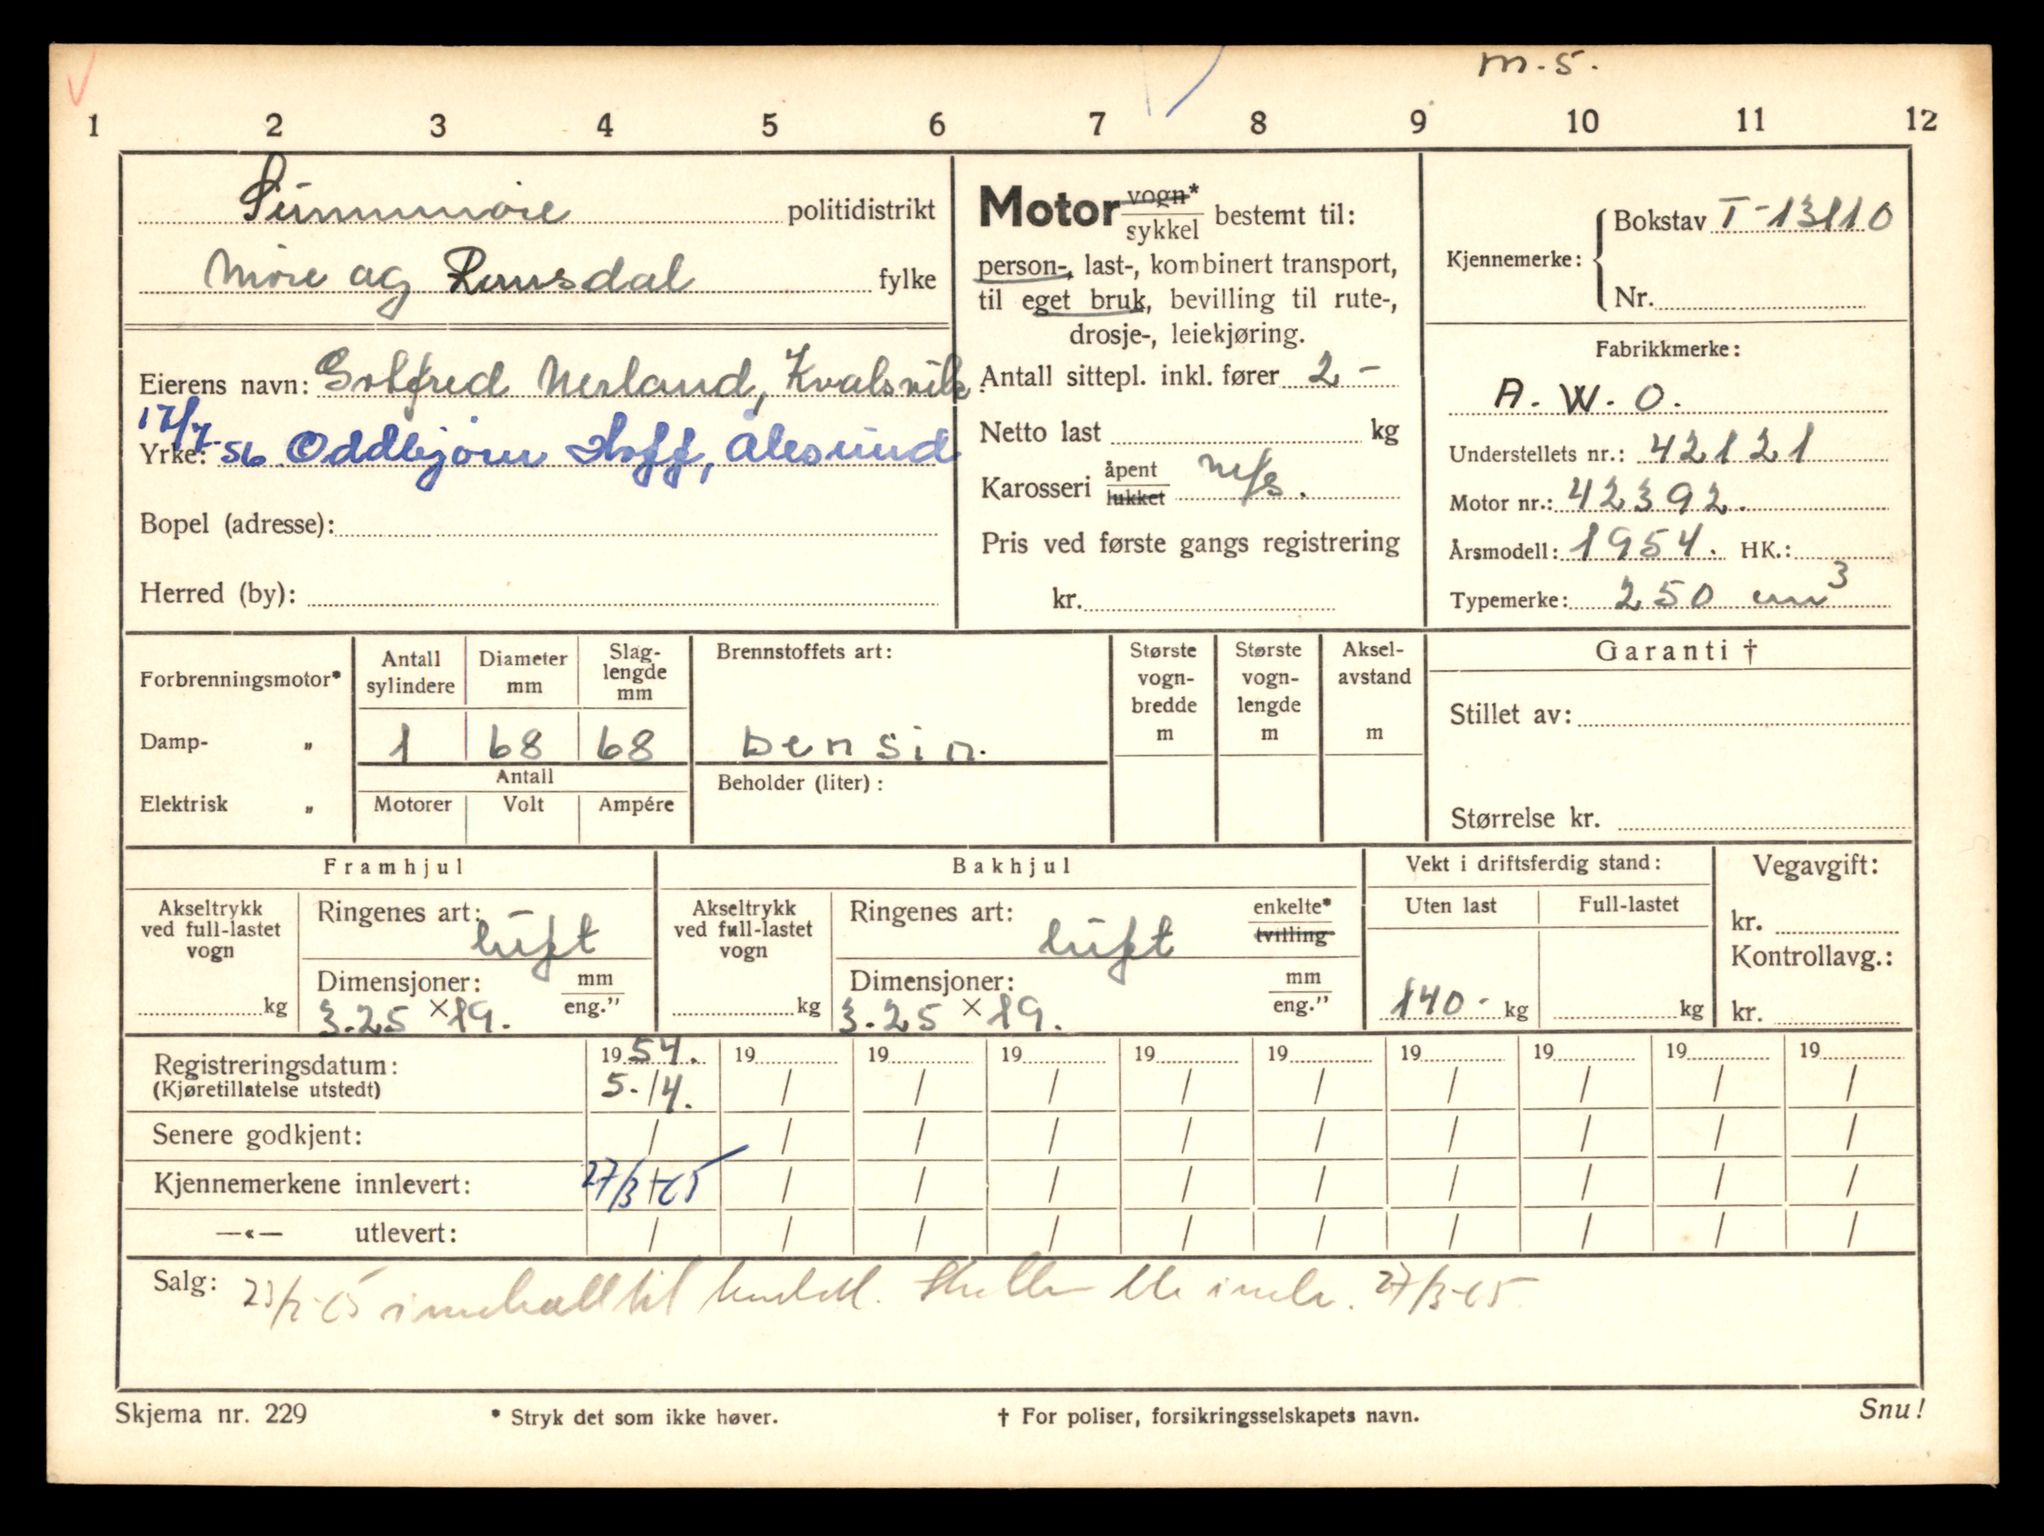 m.5.
1 2 3 4 5 6 7 8 9 10 11 12
Sunnmøre politidistrikt
Møre og Romsdal fylke
Eierens navn: Solfred Nerland, Kvalsvik
17/7-56 Oddbjørn Hoff, Ålesund
Yrke:
Bopel (adresse):
Herred (by):
Motor vogn* / sykkel bestemt til:
person-, last-, kombinert transport,
til eget bruk, bevilling til rute-,
drosje-, leiekjøring.
Antall sittepl. inkl. fører 2-
Netto last kg
Karosseri åpent / lukket m/s.
Pris ved første gangs registrering
kr.
Kjennemerke: Bokstav T-13110
Nr.
Fabrikkmerke:
A.W.O.
Understellets nr.: 42121
Motor nr.: 42392.
Årsmodell: 1954. HK.:
Typemerke: 250 cm³
Forbrenningsmotor*
Damp- „
Elektrisk „
Antall sylindere Diameter mm Slag-lengde mm
1 68 68
Antall
Motorer Volt Ampére
Brennstoffets art:
bensin.
Beholder (liter):
Største vogn-bredde m
Største vogn-lengde m
Aksel-avstand m
Garanti †
Stillet av:
Størrelse kr.
Framhjul
Akseltrykk ved full-lastet vogn
kg
Ringenes art: luft
Dimensjoner: mm / eng."
3.25 × 19.
Bakhjul
Akseltrykk ved full-lastet vogn
kg
Ringenes art: luft enkelte* / tvilling
Dimensjoner: mm / eng."
3.25 × 19.
Vekt i driftsferdig stand:
Uten last Full-lastet
140- kg kg
Vegavgift:
kr.
Kontrollavg.:
kr.
Registreringsdatum: 1954. 19 19 19 19 19 19 19 19 19
(Kjøretillatelse utstedt) 5./4. / / / / / / / / /
Senere godkjent: / / / / / / / / / /
Kjennemerkene innlevert: 27/3-65 / / / / / / / / /
—«— utlevert: / / / / / / / / / /
Salg: innkalt til 27/3-65
Skjema nr. 229 * Stryk det som ikke høver. † For poliser, forsikringsselskapets navn. Snu!